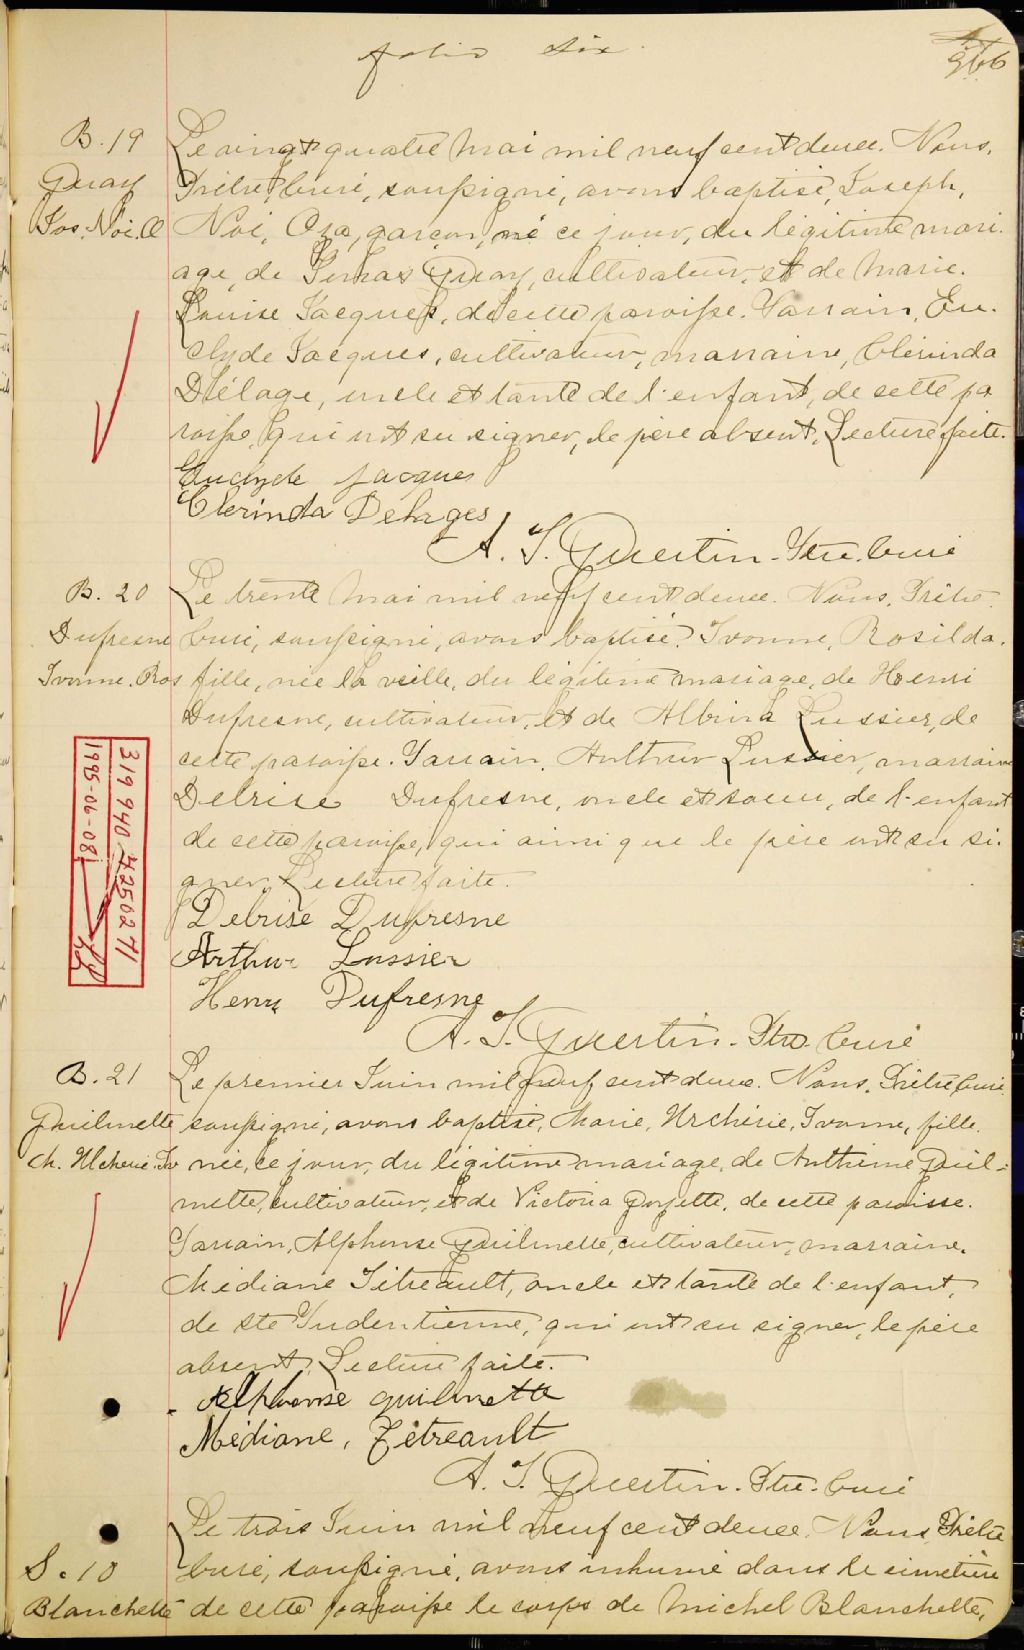 folio six
966
B. 19
Guay
Jos. Noé. O
Le vingt quatre Mai mil neuf cent deux. Nous,
Prêtre Curé, soussigné, avons baptisé, Joseph,
Noé, Oza, garçon, né ce jour, du légitime mari-
age, de Guay, cultivateur, et de Marie.
Louise Jacques, de cette paroisse. Parrain, Eu-
clyde Jacques, cultivateur, marraine, Clérinda
Délage, oncle et tante de l'enfant, de cette pa
roisse, qui ont su signer, le père absent. Lecture faite.
Euclyde Jacques
Clerinda Delages
A. T. Guertin. Ptre. Curé
B. 20
Dufresne
Ivonne. Ros
Le trente Mai mil neuf cent deux. Nous, Prêtre
Curé, soussigné, avons baptisé, Ivonne, Rosilda,
fille, née la veille, du légitime mariage, de Henri
Dufresne, cultivateur, et de Albina Lussier, de
cette paroisse. Parrain, Arthur Lussier, marraine
Delrise Dufresne, oncle et soeur, de l'enfant
de cette paroisse, qui ainsi que le père ont su si-
gner, Lecture faite.
Delrise Dufresne
Arthur Lussier
Henri Dufresne
A. T. Guertin. Ptre. Curé
319 940 4250271
1995-06-08
B. 21
Guilmette
M. Ulcherie. Iv
Le premier Juin mil neuf cent deux. Nous, Prêtre Curé
soussigné, avons baptisé, Marie, Urchérie, Ivonne, fille
née, ce jour, du légitime mariage, de Anthime Guil-
mette, cultivateur, et de Victoria Goyette, de cette paroisse.
Parrain, Alphonse Guilmette, cultivateur, marraine,
Médiane Tétreault, oncle et tante de l'enfant,
de Ste Pudentienne, qui ont su signer, le père
absent. Lecture faite.
Alphonse Guilmette
Médiane, Tétreault
A. T. Guertin. Ptre. Curé
S. 10
Blanchette
Le trois Juin mil neuf cent deux. Nous, Prêtre
Curé, soussigné, avons inhumé dans le cimetière
de cette paroisse le corps de Michel Blanchette,